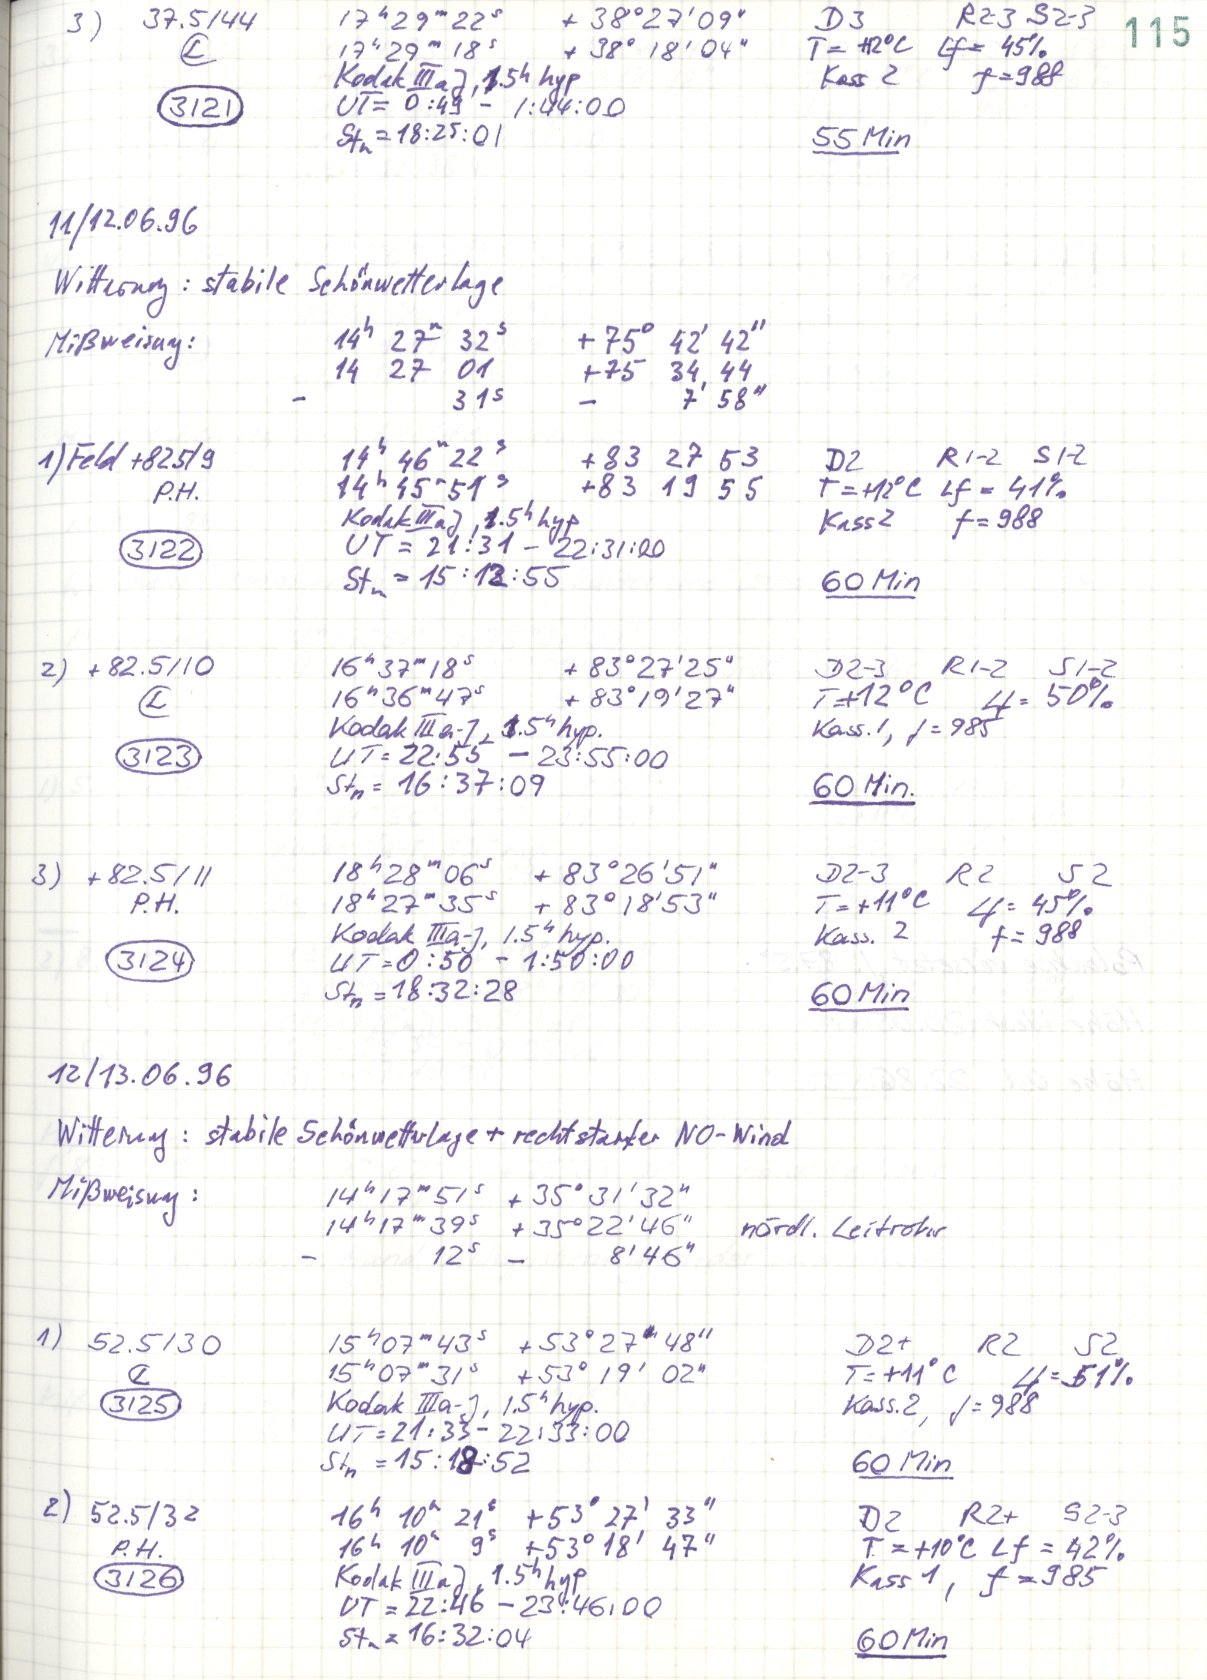 115
3) 37.5/44 17ʰ29ᵐ22ˢ +38°27'09" D3 R2-3 S2-3
17ʰ29ᵐ18ˢ +38°18'04" T=+12°C Lf=45%
Kodak IIIaJ, 1.5ʰ hyp Kass 2 f=988
3121 UT=0:49 - 1:44:00
Stₙ=18:25:01 55 Min
11/12.06.96
Witterung: stabile Schönwetterlage
Mißweisung: 14ʰ 27ᵐ 32ˢ +75° 42' 42"
14 27 01 +75 34, 44
- 31ˢ - 7' 58"
1) Feld +82.5/9 14ʰ 46ᵐ 22ˢ +83 27 53 D2 R1-2 S1-2
P.H. 14ʰ 45ᵐ 51ˢ +83 19 55 T=+12°C Lf=41%
Kodak IIIaJ, 1.5ʰ hyp Kass 2 f=988
3122 UT = 21:31 - 22:31:00
Stₙ = 15:12:55 60 Min
2) +82.5/10 16ʰ37ᵐ18ˢ +83°27'25" D2-3 R1-2 S1-2
16ʰ36ᵐ47ˢ +83°19'27" T=+12°C Lf=50%
Kodak IIIa-J, 1.5ʰ hyp. Kass.1, f=985
3123 UT=22:55 - 23:55:00
Stₙ = 16:37:09 60 Min.
3) +82.5/11 18ʰ28ᵐ06ˢ +83°26'51" D2-3 R2 S2
P.H. 18ʰ27ᵐ35ˢ +83°18'53" T=+11°C Lf=45%
Kodak IIIa-J, 1.5ʰ hyp. Kass. 2 f=988
3124 UT=0:50 - 1:50:00
Stₙ=18:32:28 60 Min
12/13.06.96
Witterung: stabile Schönwetterlage + recht starker NO-Wind
Mißweisung: 14ʰ17ᵐ51ˢ +35°31'32"
14ʰ17ᵐ39ˢ +35°22'46" nördl. Leitrohr
- 12ˢ - 8'46"
1) 52.5/30 15ʰ07ᵐ43ˢ +53°27'48" D2+ R2 S2
15ʰ07ᵐ31ˢ +53°19'02" T=+11°C Lf=51%
3125 Kodak IIIa-J, 1.5ʰ hyp. Kass.2, f=988
UT=21:33 - 22:33:00
Stₙ = 15:18:52 60 Min
2) 52.5/32 16ʰ 10ᵐ 21ˢ +53° 27' 33" D2 R2+ S2-3
P.H. 16ʰ 10ᵐ 9ˢ +53° 18' 47" T=+10°C Lf=42%
3126 Kodak IIIaJ, 1.5ʰ hyp Kass 1, f=985
UT = 22:46 - 23:46:00
Stₙ = 16:32:04 60 Min